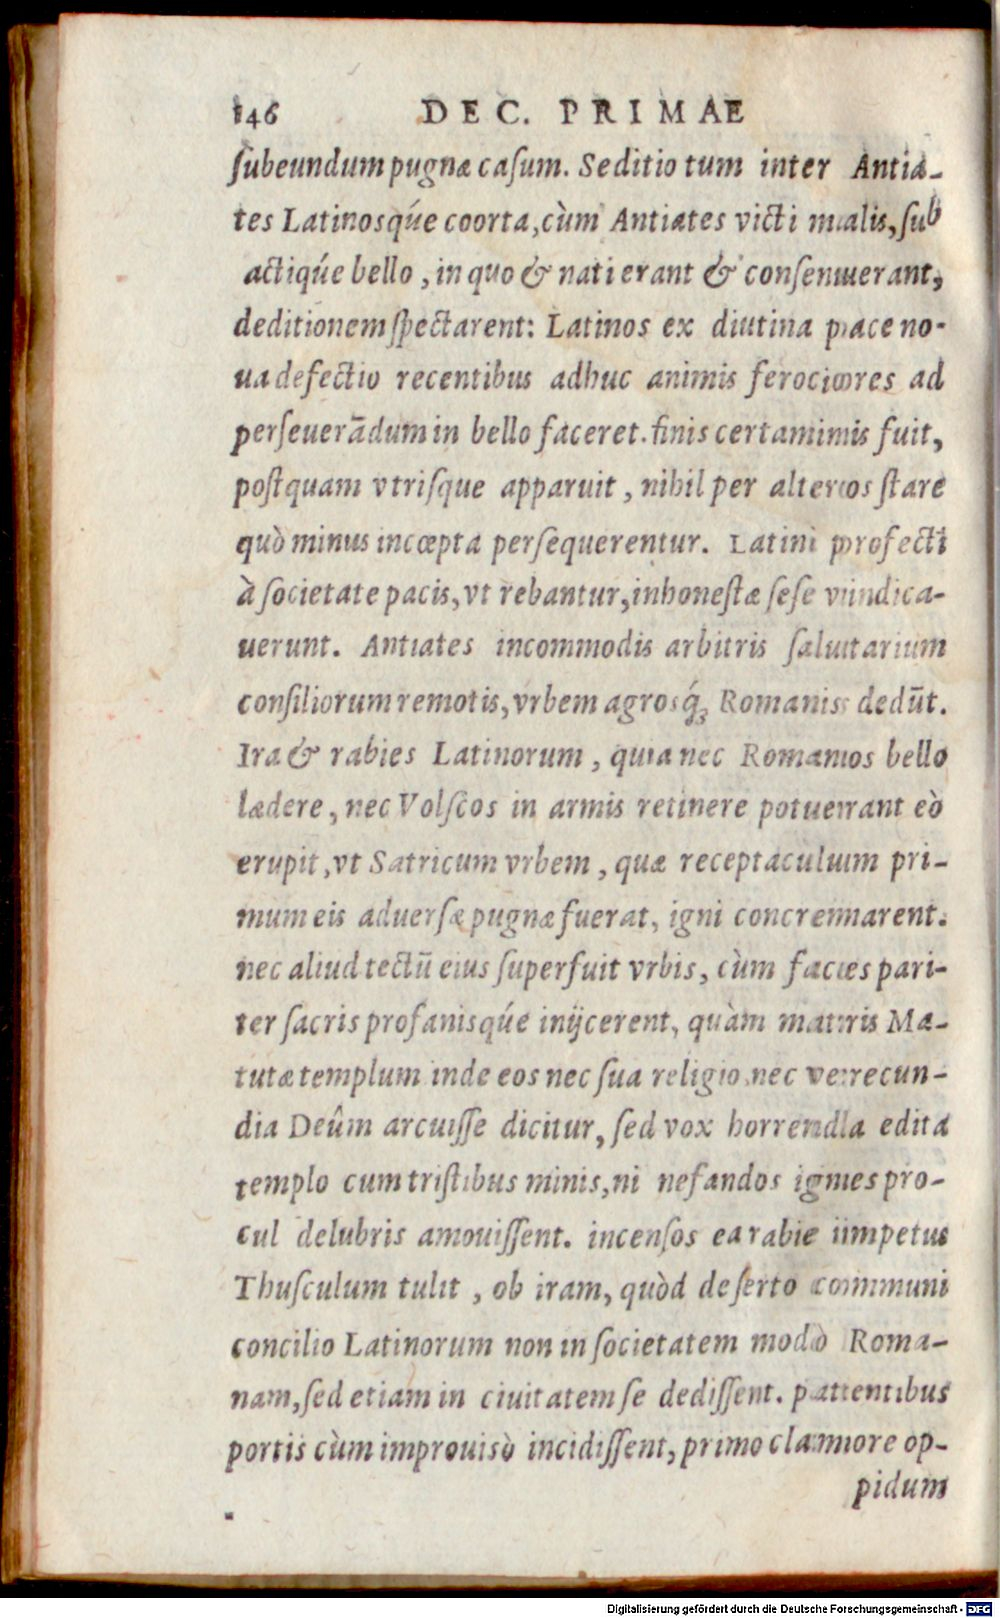 146 DEC. PRIMAE
ſubeundum pugnæ caſum. Seditio tum inter Antia-
tes Latinosq́ue coorta, cùm Antiates victi malis, ſub
actiq́ue bello, in quo & nati erant & conſenuerant,
deditionem ſpectarent: Latinos ex diutina pace no-
ua defectio recentibus adhuc animis ferociores ad
perſeuerãdum in bello faceret. finis certaminis fuit,
poſtquam vtriſque apparuit, nihil per alteros ſtare
quò minus incœpta perſequerentur. Latini profecti
à ſocietate pacis, vt rebantur, inhoneſtæ ſeſe vindica-
uerunt. Antiates incommodis arbitris ſalutarium
conſiliorum remotis, vrbem agrosq́; Romanis dedũt.
Ira & rabies Latinorum, quia nec Romanos bello
lædere, nec Volſcos in armis retinere potuerant eò
erupit, vt Satricum vrbem, quæ receptaculum pri-
mum eis aduerſæ pugnæ fuerat, igni concremarent.
nec aliud tectũ eius ſuperfuit vrbis, cùm faces pari-
ter ſacris profanisq́ue inijcerent, quàm matris Ma-
tutæ templum inde eos nec ſua religio nec verecun-
dia Deûm arcuiſſe dicitur, ſed vox horrenda edita
templo cum triſtibus minis, ni nefandos ignes pro-
cul delubris amouiſſent. incenſos ea rabie impetus
Thuſculum tulit, ob iram, quòd deſerto communi
concilio Latinorum non in ſocietatem modò Roma-
nam, ſed etiam in ciuitatem ſe dediſſent. patentibus
portis cùm improuisò incidiſſent, primo clamore op-
pidum
Digitalisierung gefördert durch die Deutsche Forschungsgemeinschaft - DFG